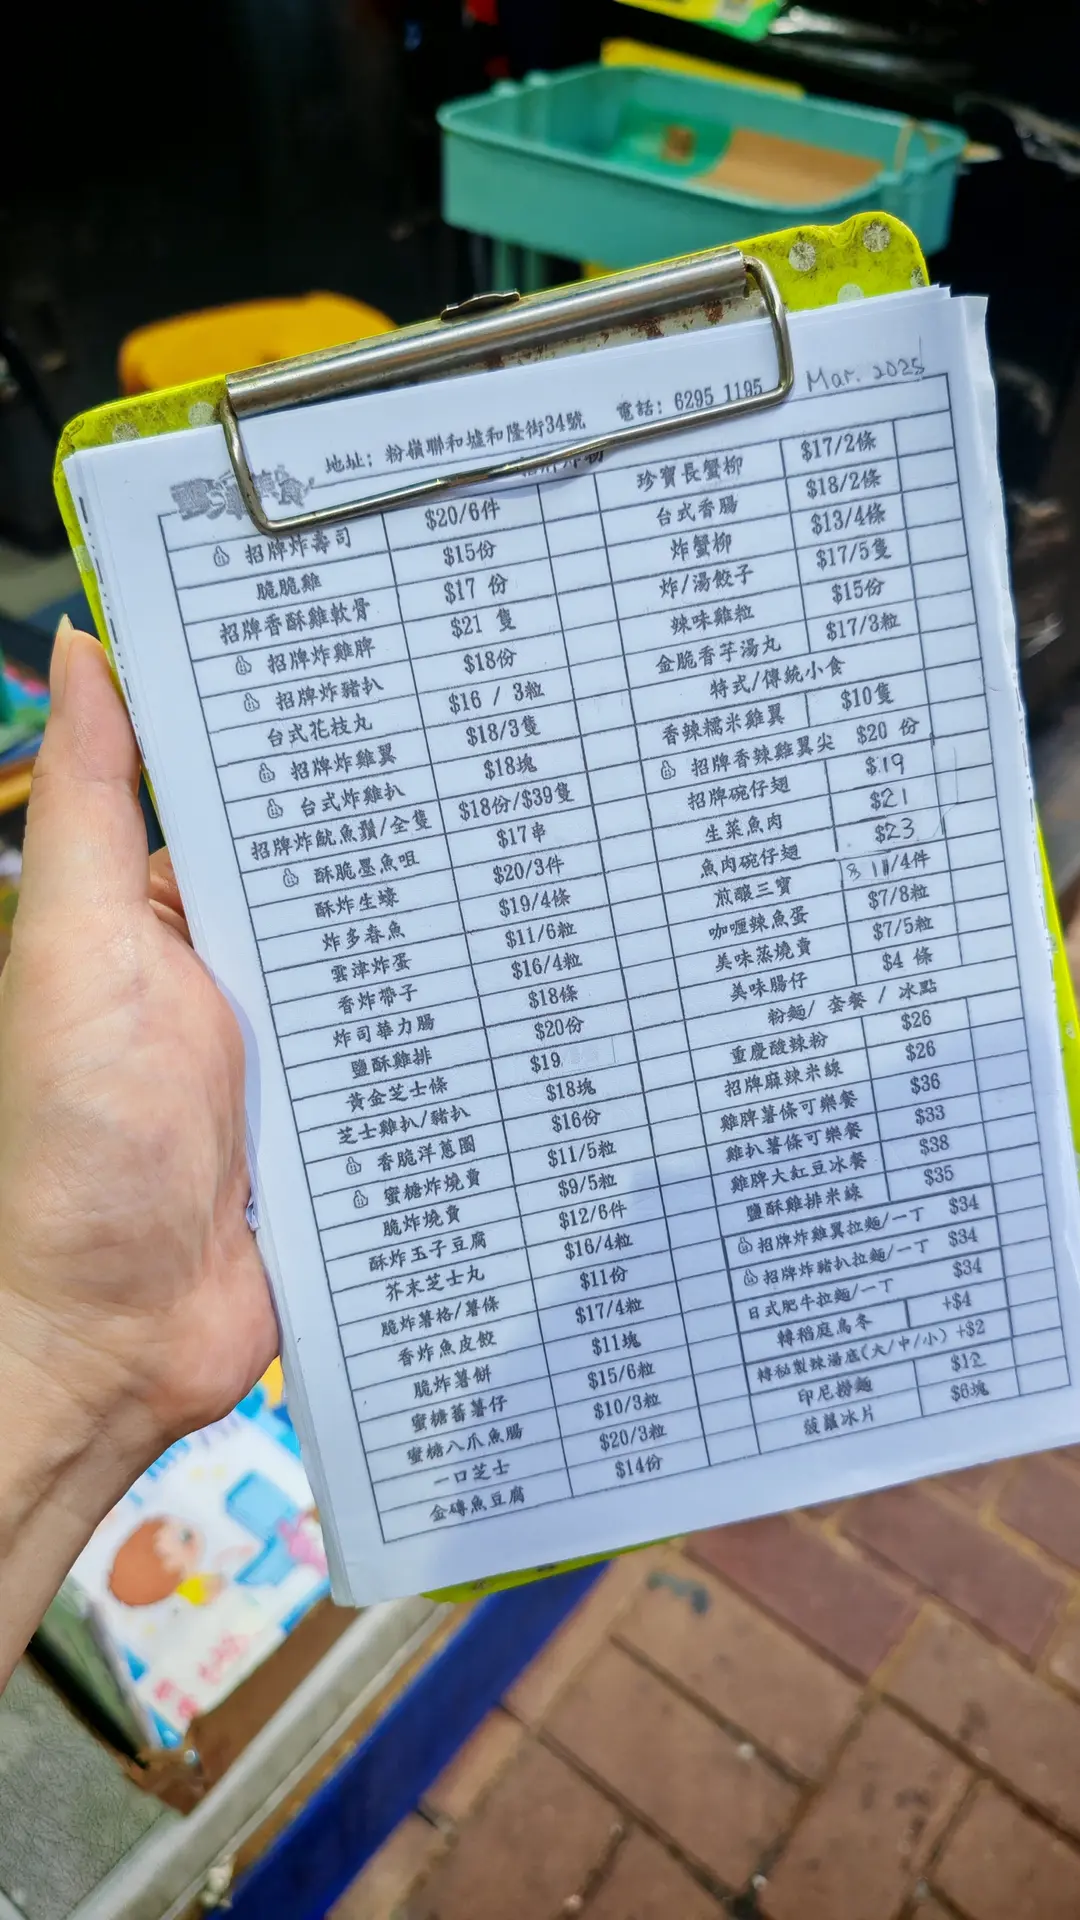 地址: 粉嶺聯和墟和隆街34號 電話: 6295 1195 Mar. 2025
招牌炸壽司 $20/6件
脆脆雞 $15份
招牌香酥雞軟骨 $17 份
招牌炸雞脾 $21 隻
招牌炸豬扒 $18份
台式花枝丸 $16 / 3粒
招牌炸雞翼 $18/3隻
台式炸雞扒 $18塊
招牌炸魷魚鬚/全隻 $18份/$39隻
酥脆墨魚咀 $17串
酥炸生蠔 $20/3件
炸多春魚 $19/4條
雲津炸蛋 $11/6粒
香炸帶子 $16/4粒
炸司華力腸 $18條
鹽酥雞排 $20份
黃金芝士條 $19
芝士雞扒/豬扒 $18塊
香脆洋蔥圈 $16份
蜜糖炸燒賣 $11/5粒
脆炸燒賣 $9/5粒
酥炸玉子豆腐 $12/6件
芥末芝士丸 $16/4粒
脆炸薯格/薯條 $11份
香炸魚皮餃 $17/4粒
脆炸薯餅 $11塊
蜜糖蕃薯仔 $15/6粒
蜜糖八爪魚腸 $10/3粒
一口芝士 $20/3粒
金磚魚豆腐 $14份
珍寶長蟹柳 $17/2條
台式香腸 $18/2條
炸蟹柳 $13/4條
炸/湯餃子 $17/5隻
辣味雞粒 $15份
金脆香芋湯丸 $17/3粒
特式/傳統小食
香辣糯米雞翼 $10隻
招牌香辣雞翼尖 $20 份
招牌碗仔翅 $19
生菜魚肉 $21
魚肉碗仔翅 $23
煎釀三寶 /4件
咖喱辣魚蛋 $7/8粒
美味蒸燒賣 $7/5粒
美味腸仔 $4 條
粉麵/ 套餐 / 冰點
重慶酸辣粉 $26
招牌麻辣米線 $26
雞脾薯條可樂餐 $36
雞扒薯條可樂餐 $33
雞脾大紅豆冰餐 $38
鹽酥雞排米線 $35
招牌炸雞翼拉麵/一丁 $34
招牌炸豬扒拉麵/一丁 $34
日式肥牛拉麵/一丁 $34
轉稻庭烏冬 +$4
轉秘製辣湯底(大/中/小) +$2
印尼撈麵 $12
菠蘿冰片 $6塊